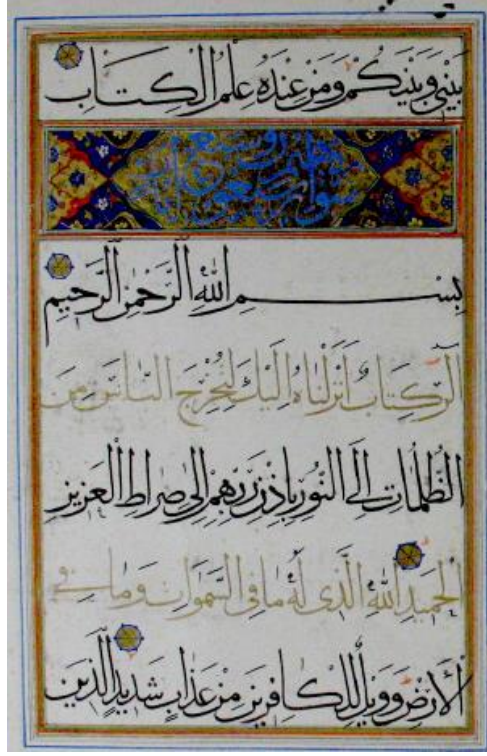 بَيْنِي وَبَيْنَكُمْ وَمَنْ عِنْدَهُ عِلْمُ الْكِتَابِ
بِسْمِ اللَّهِ الرَّحْمٰنِ الرَّحِيمِ
الٓرٰ كِتَابٌ اَنْزَلْنَاهُ اِلَيْكَ لِتُخْرِجَ النَّاسَ مِنَ
الظُّلُمَاتِ اِلَى النُّورِ بِاِذْنِ رَبِّهِمْ اِلٰى صِرَاطِ الْعَزِيزِ
الْحَمِيدِ اللَّهِ الَّذِى لَهُ مَا فِى السَّمٰوَاتِ وَمَا فِى
الْاَرْضِ وَوَيْلٌ لِلْكَافِرِينَ مِنْ عَذَابٍ شَدِيدٍ الَّذِينَ